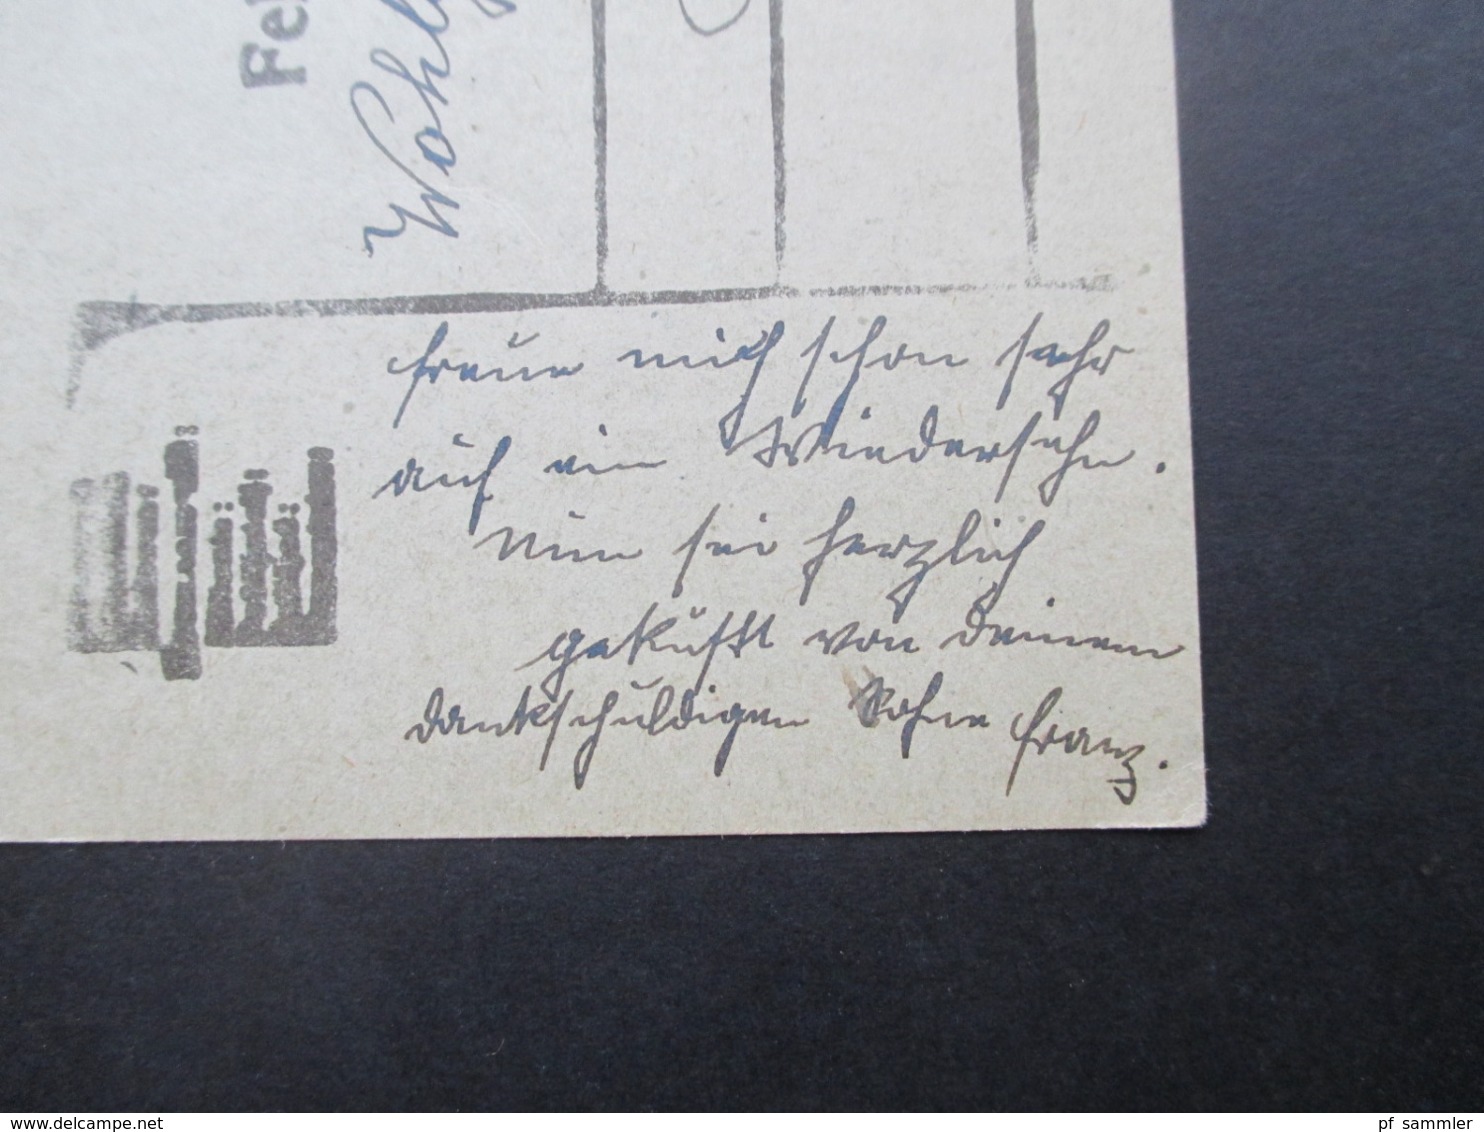 Fel
Wohl
freue mich schon sehr
auf ein Wiedersehn.
Nun sei herzlich
geküßt von Deinem
dankschuldigen Sohne Franz.
pf_sammler
www.delcampe.net